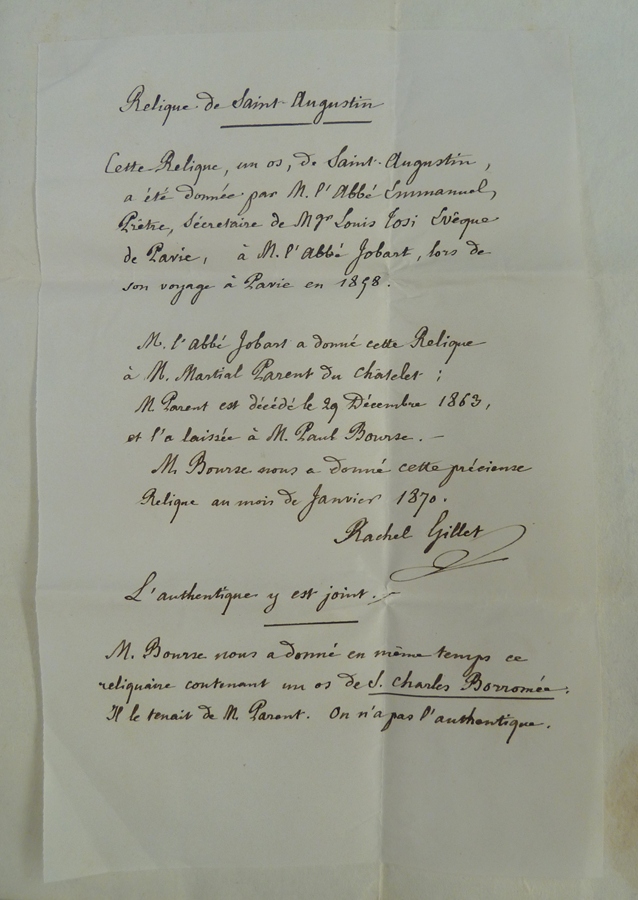 Relique de Saint Augustin
Cette Relique, un os, de Saint-Augustin,
a été donnée par M. l'Abbé Emmanuel,
Prêtre, Sécretaire de Mgr Louis Tosi Evêque
de Pavie, à M. l'Abbé Jobart, lors de
son voyage à Pavie en 1858.
M. l'Abbé Jobart a donné cette Relique
à M. Martial Parent du Chatelet ;
M Parent est décédé le 29 Décembre 1863,
et l'a laissée à M. Paul Bourse. -
M. Bourse nous a donné cette précieuse
Relique au mois de Janvier 1870.
Rachel Gillet
L'authentique y est joint. -
M. Bourse nous a donné en même temps ce
reliquaire contenant un os de S. Charles Borromée.
Il le tenait de M. Parent. On n'a pas l'authentique.